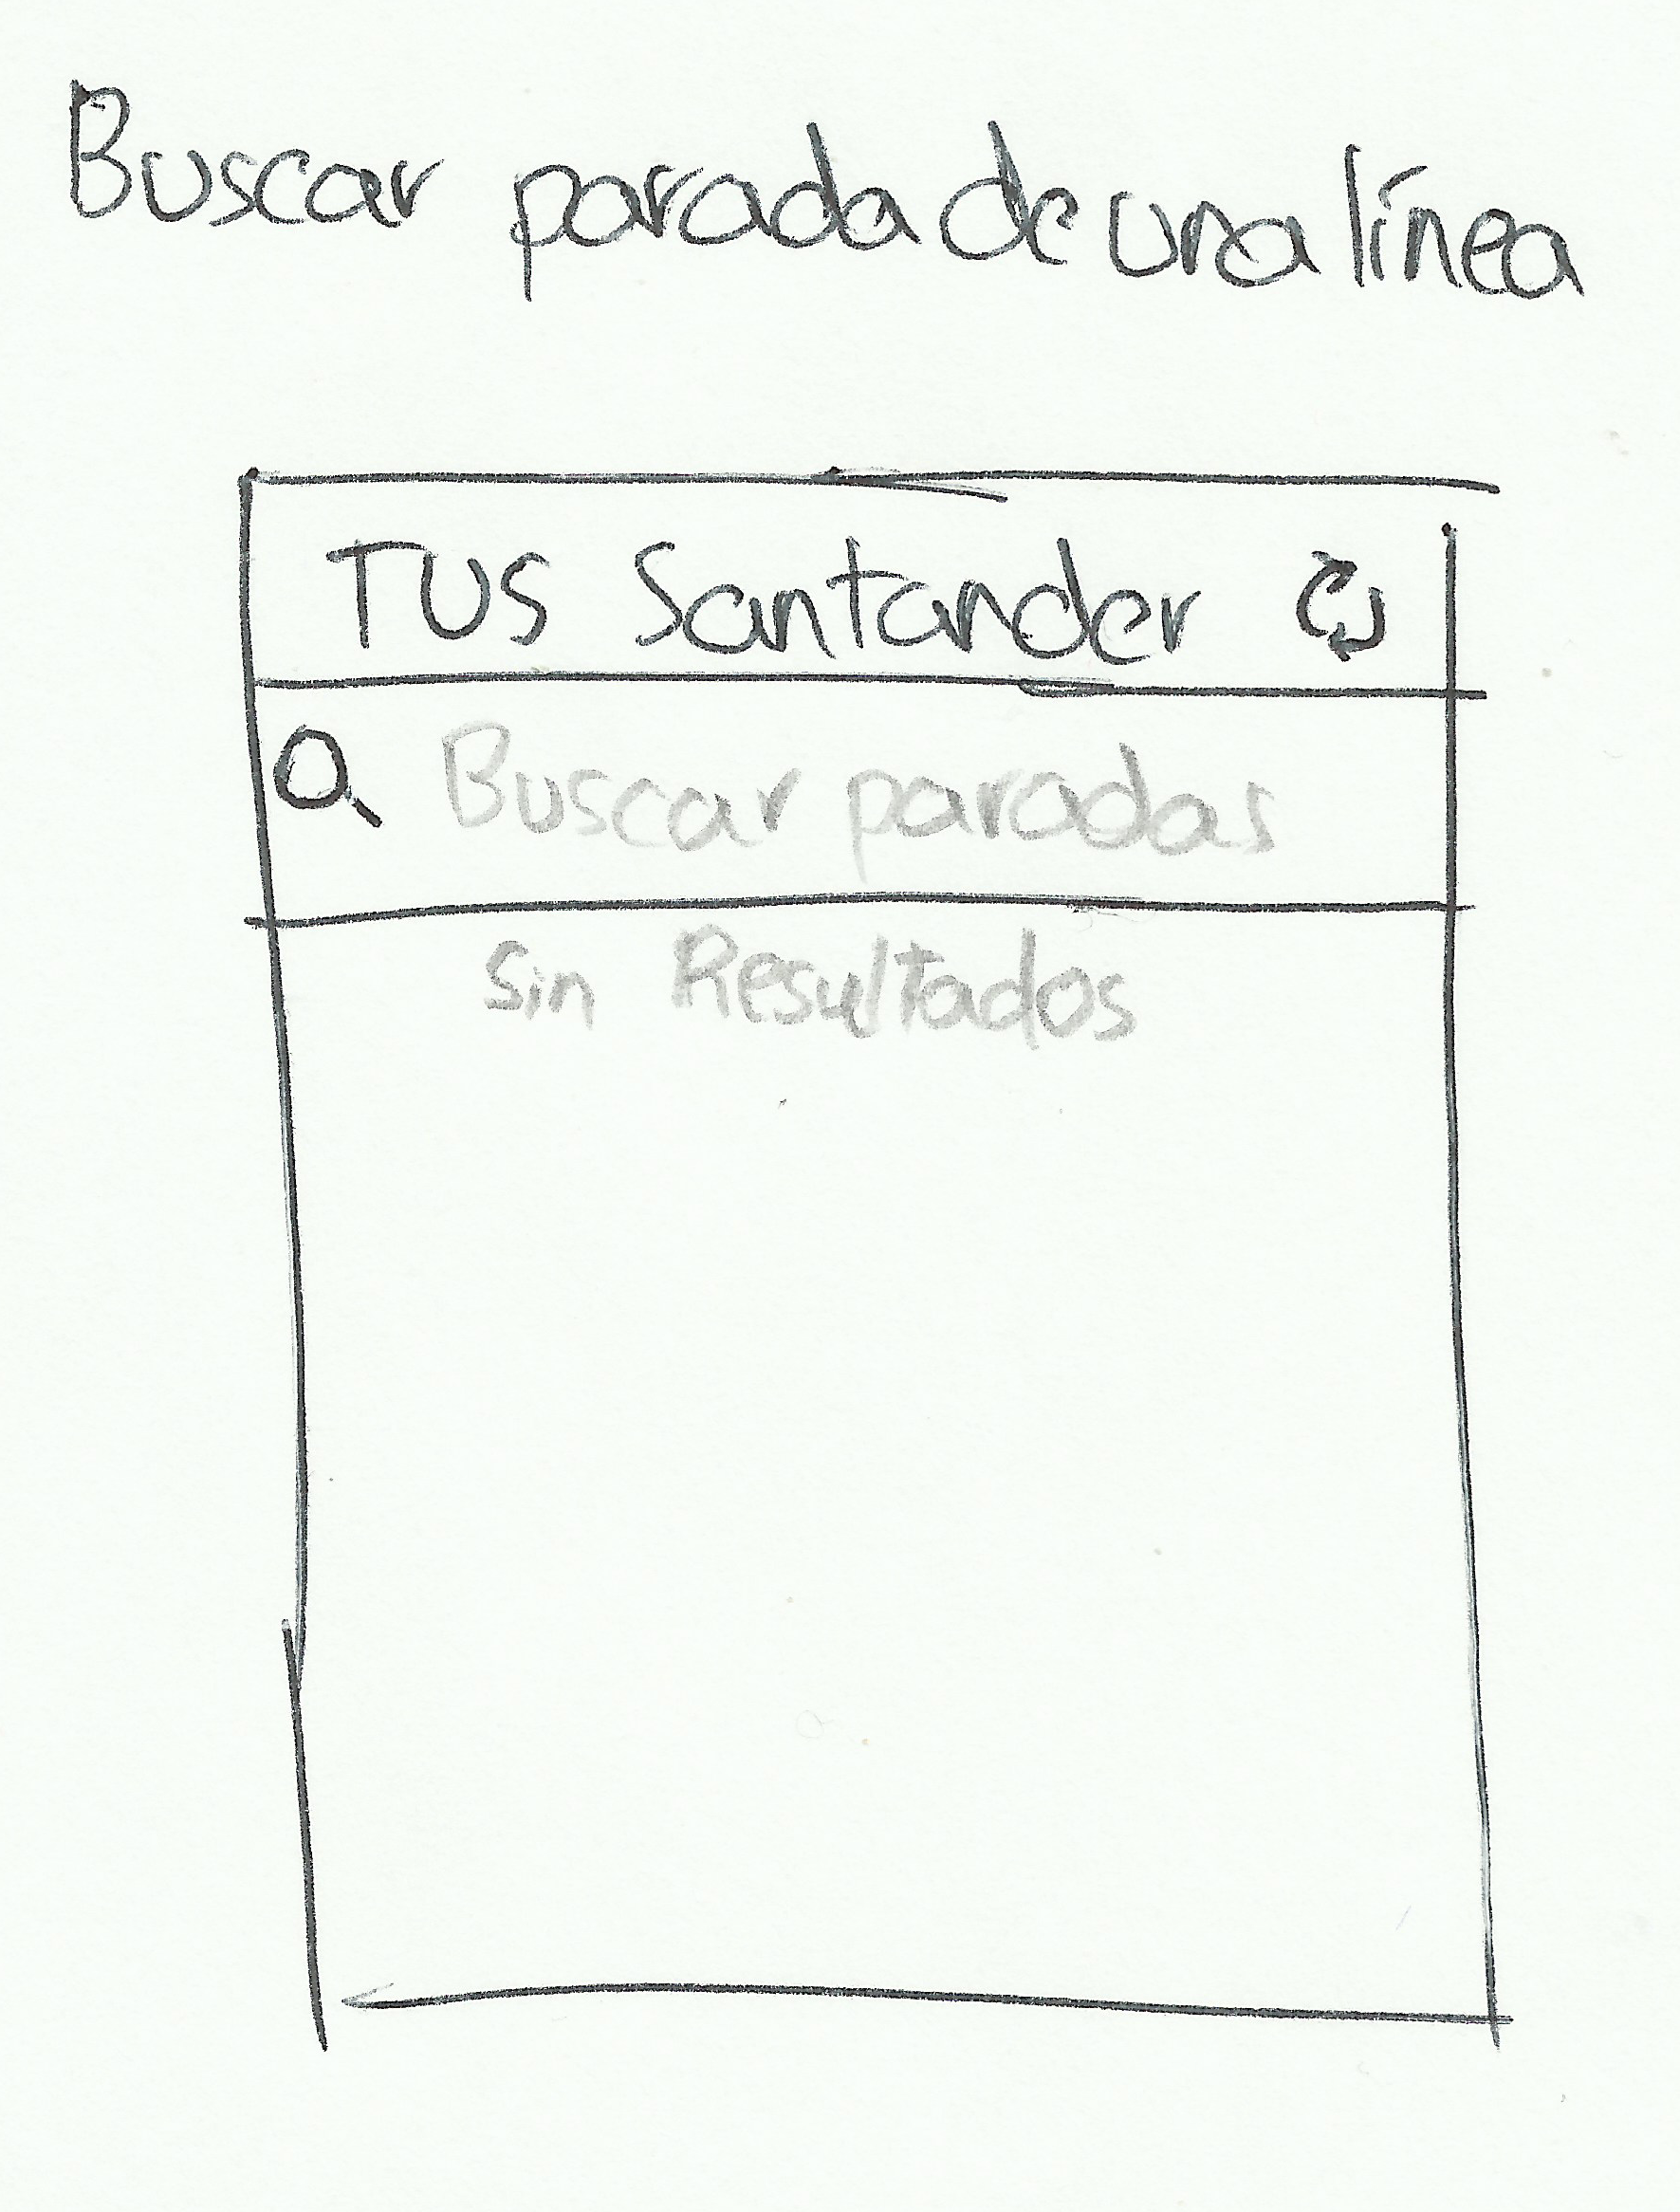 Buscar parada de una línea
TUS Santander
Buscar paradas
Sin Resultados